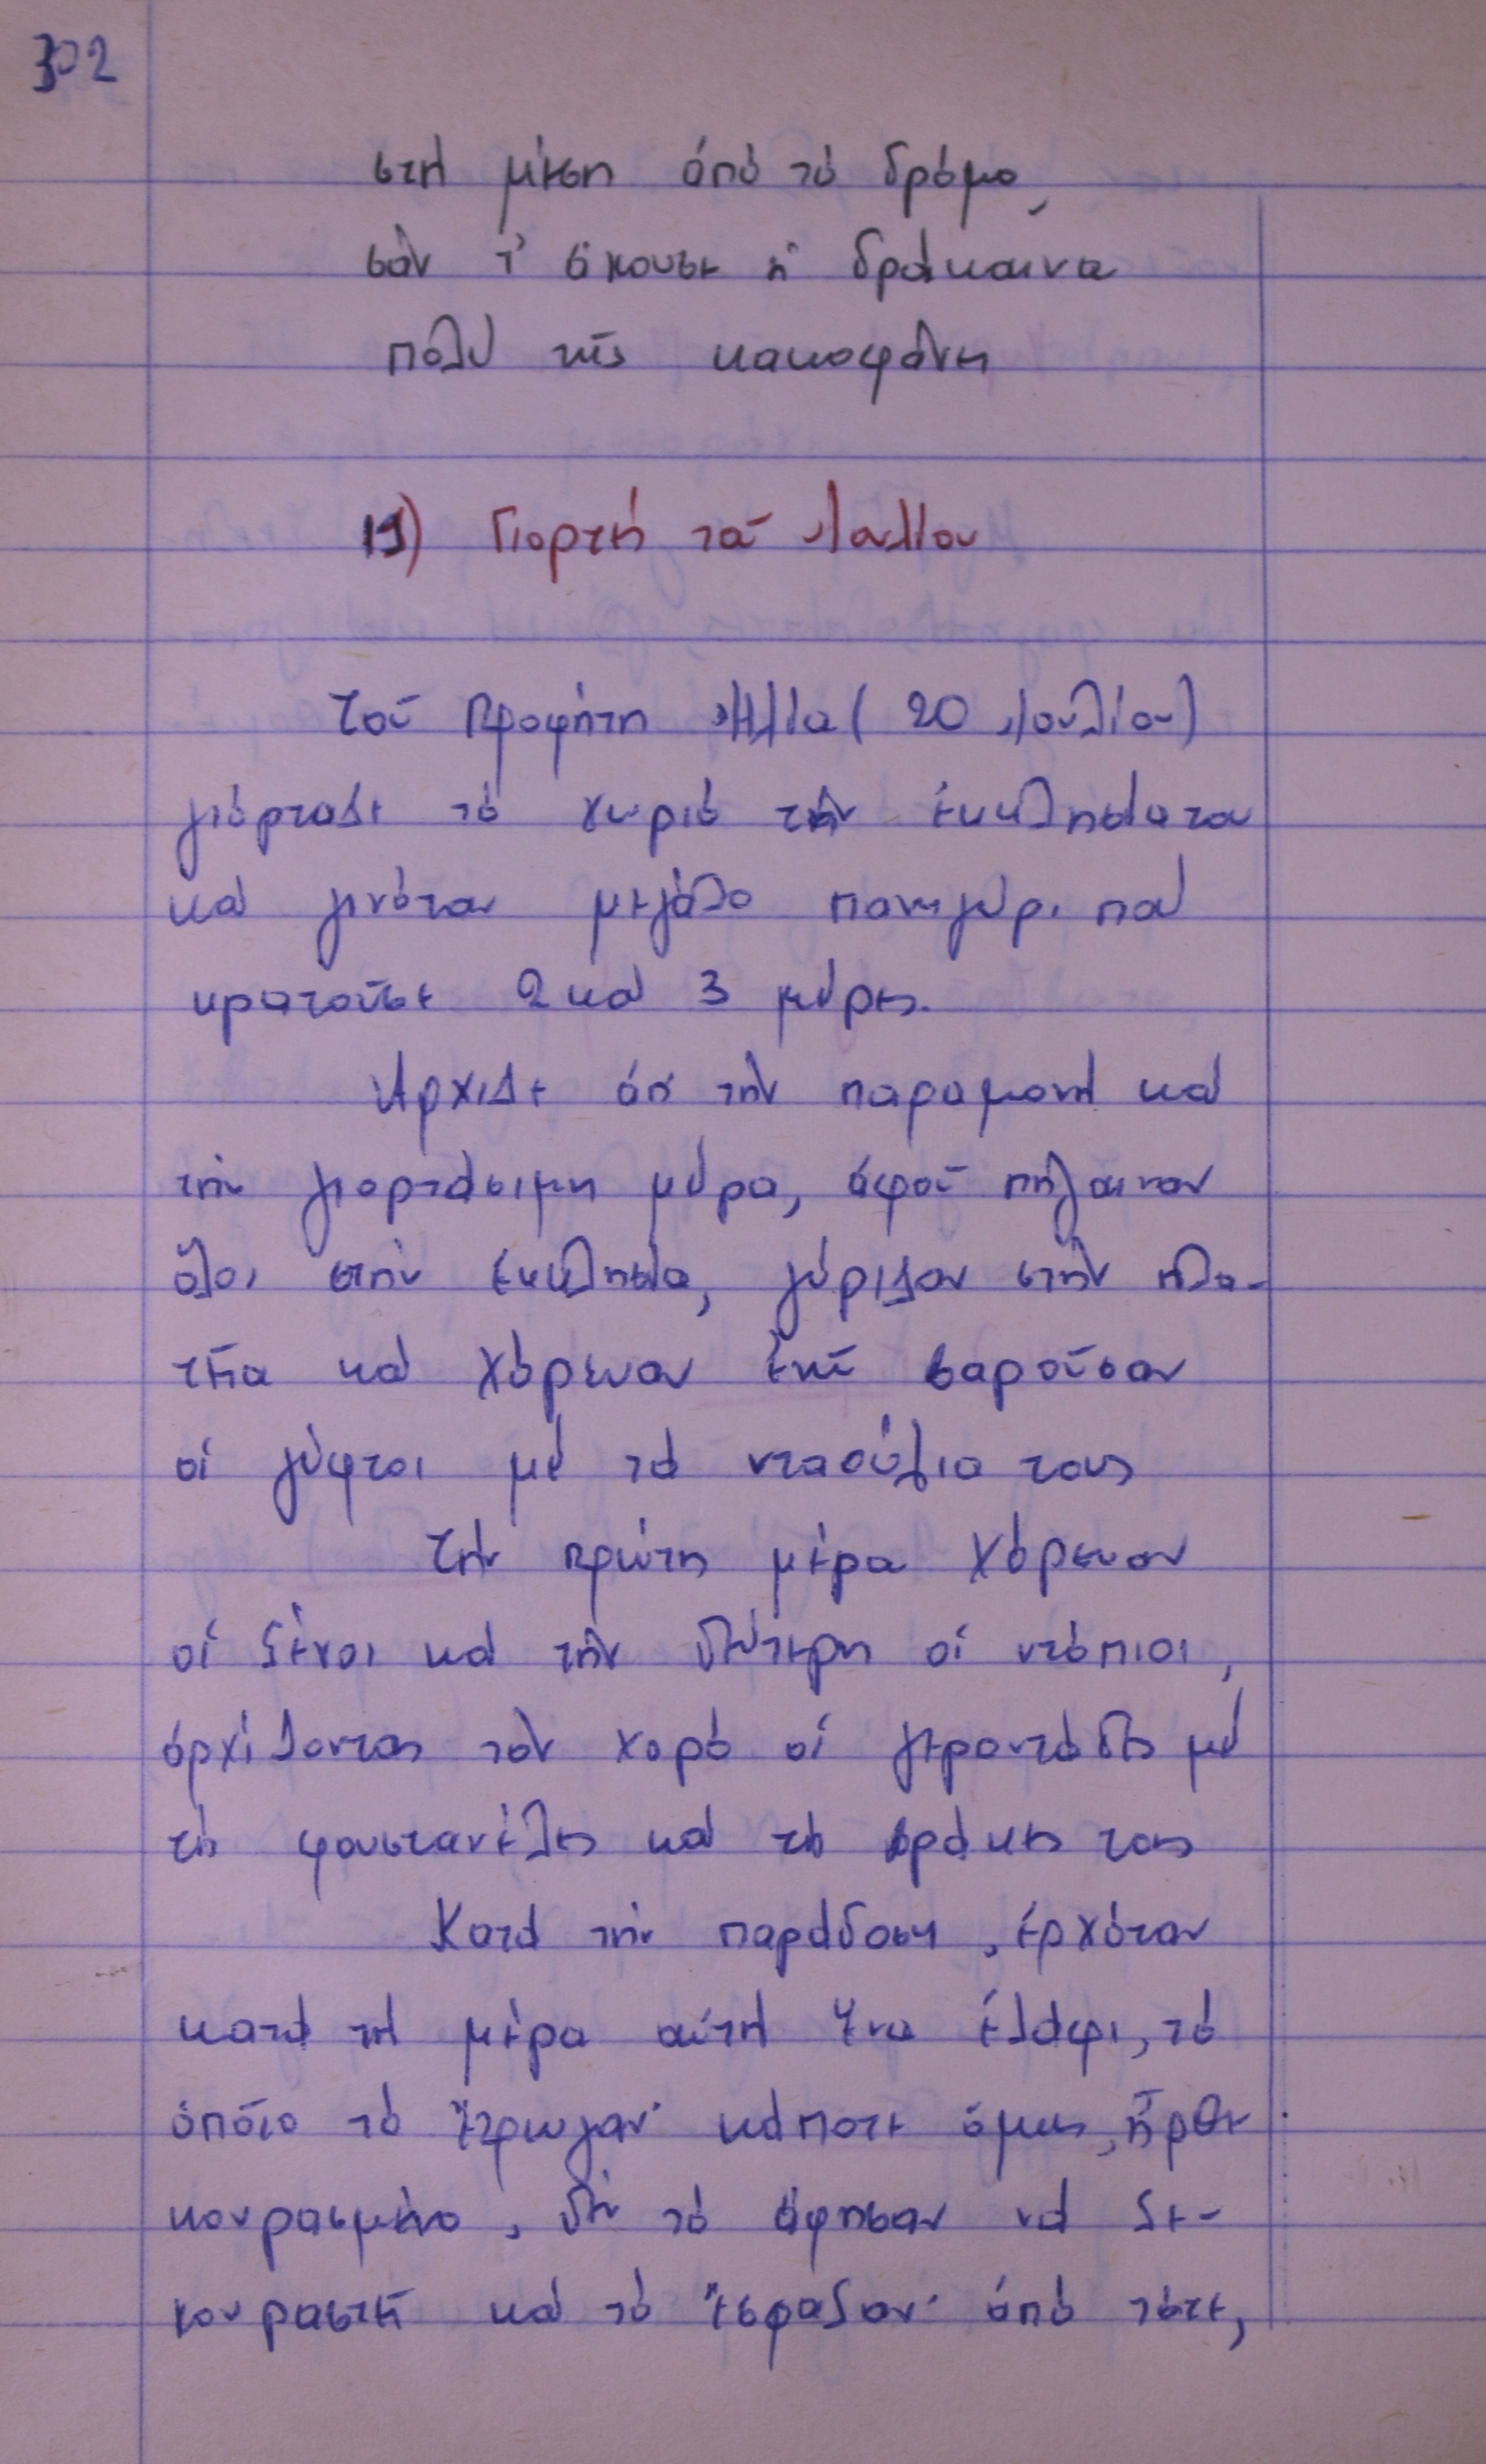 302
στή μέση ἀπό τό δρόμο,
σάν τ' ἄκουσε ἡ δράκαινα
πολύ τῆς κακοφάνη
19) Γιορτή τοῦ Ἰουλίου
Τοῦ Προφήτη Ἠλία (20 Ἰουλίου)
γιόρταζε τό χωριό τήν ἐκκλησία του
καί γινόταν μεγάλο πανηγύρι πού
κρατοῦσε 2 καί 3 μέρες.
Ἄρχιζε ἀπ' τήν παραμονή καί
τήν γιορτάσιμη μέρα, ἀφοῦ πήγαιναν
ὅλοι στήν ἐκκλησία, γύριζαν στήν πλα-
τεῖα καί χόρευαν ἐκεῖ βαροῦσαν
οἱ γύφτοι μέ τά νταούλια τους
Τήν πρώτη μέρα χόρευαν
οἱ ξένοι καί τήν δεύτερη οἱ ντόπιοι,
ἀρχίζοντας τόν χορό οἱ γεροντάδες μέ
τίς φουστανέλες καί τίς βράκες τους
Κατά τήν παράδοση, ἐρχόταν
κατά τή μέρα αὐτή ἕνα ἐλάφι, τό
ὁποῖο τό ἔτρωγαν· κάποτε ὅμως, ἦρθε
κουρασμένο, δέν τό ἄφησαν νά ξε-
κουραστεῖ καί τό ἔσφαξαν· ἀπό τότε,